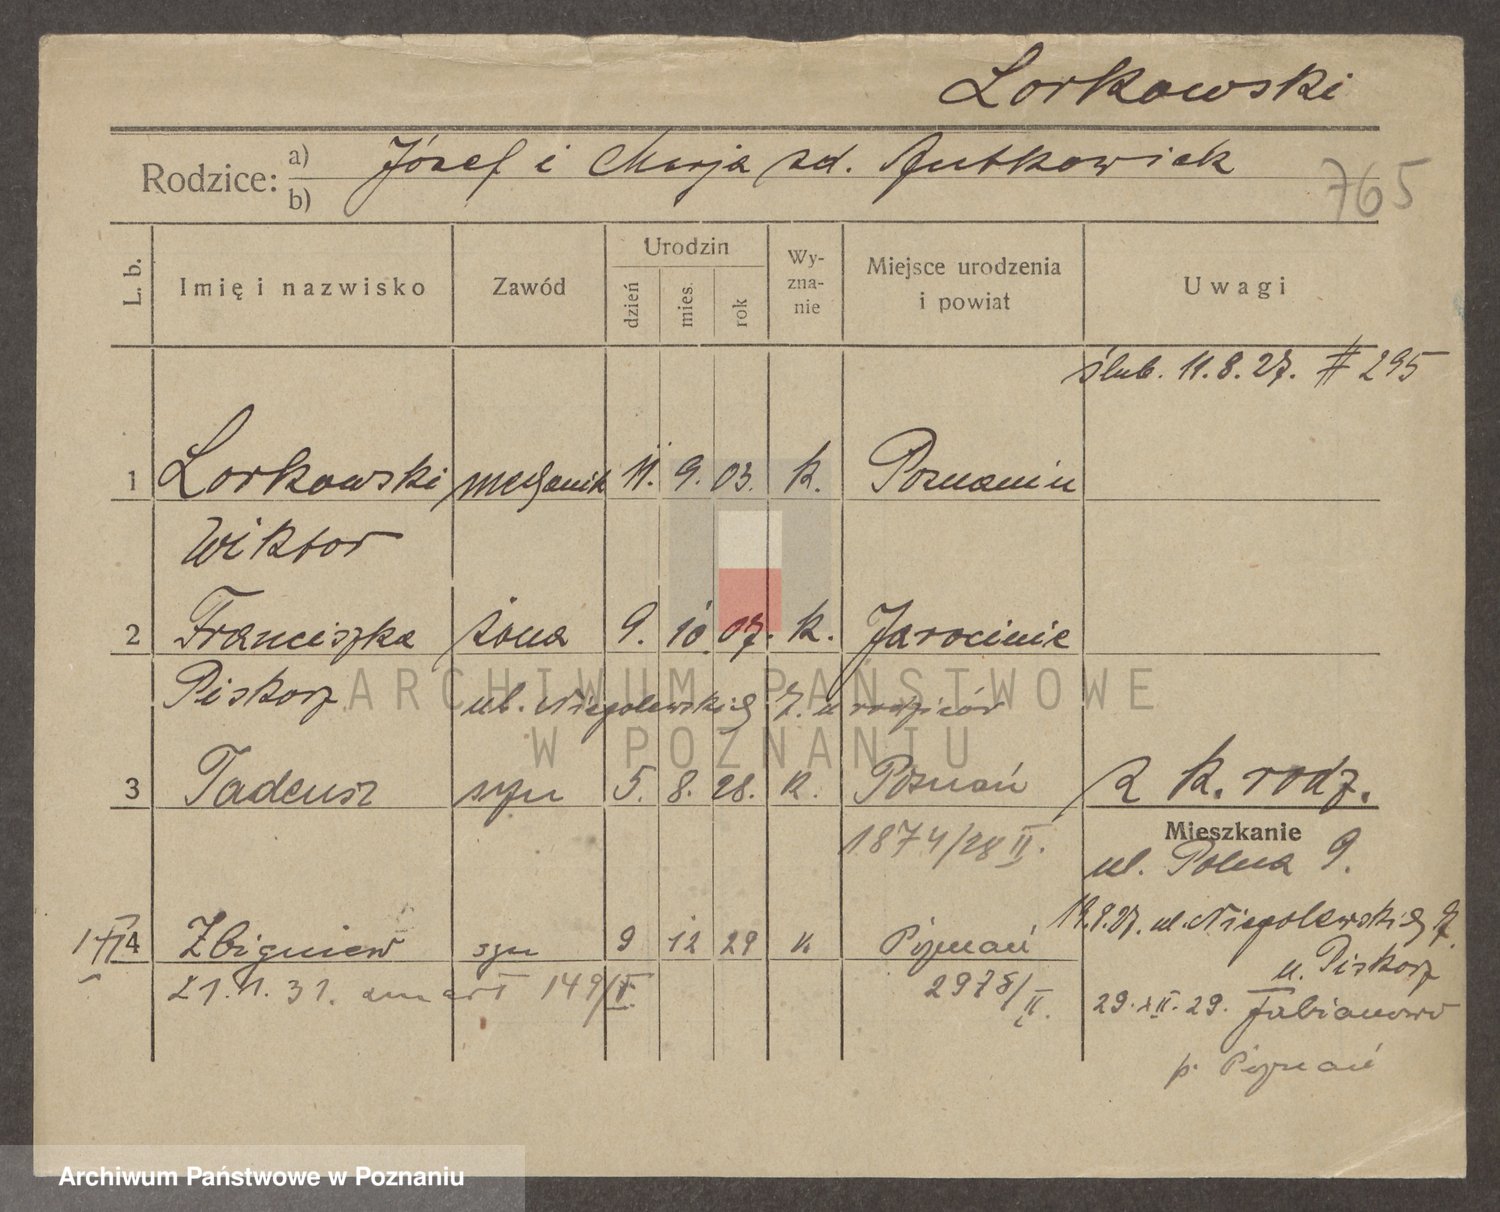 Lorkowski
Rodzice: a) Józef i Marja zd. Rutkowiak
b)
765
L. b. Imię i nazwisko Zawód Urodzin dzień mies. rok Wy-zna-nie Miejsce urodzenia i powiat Uwagi
ślub. 11.8.27. # 295
1 Lorkowski mechanik 11. 9. 03. k. Poznaniu
Wiktor
2 Franciszka żona 9. 10. 07. k. Jarocinie
Piskorz ul. Niegolewskich 7. u rodziców
3 Tadeusz syn 5. 8. 28. k. Poznań z k. rodz.
1874/28 II.
Mieszkanie
ul. Polna 9.
ul. Niegolewskich 7.
4 Zbigniew syn 9 12 29 k Poznań
u. Piskorz
21.11.31. zmarł 149/II. 2978/II.
29.XII.29. Fabianowo
p. Poznań
ARCHIWUM PAŃSTWOWE
W POZNANIU
Archiwum Państwowe w Poznaniu